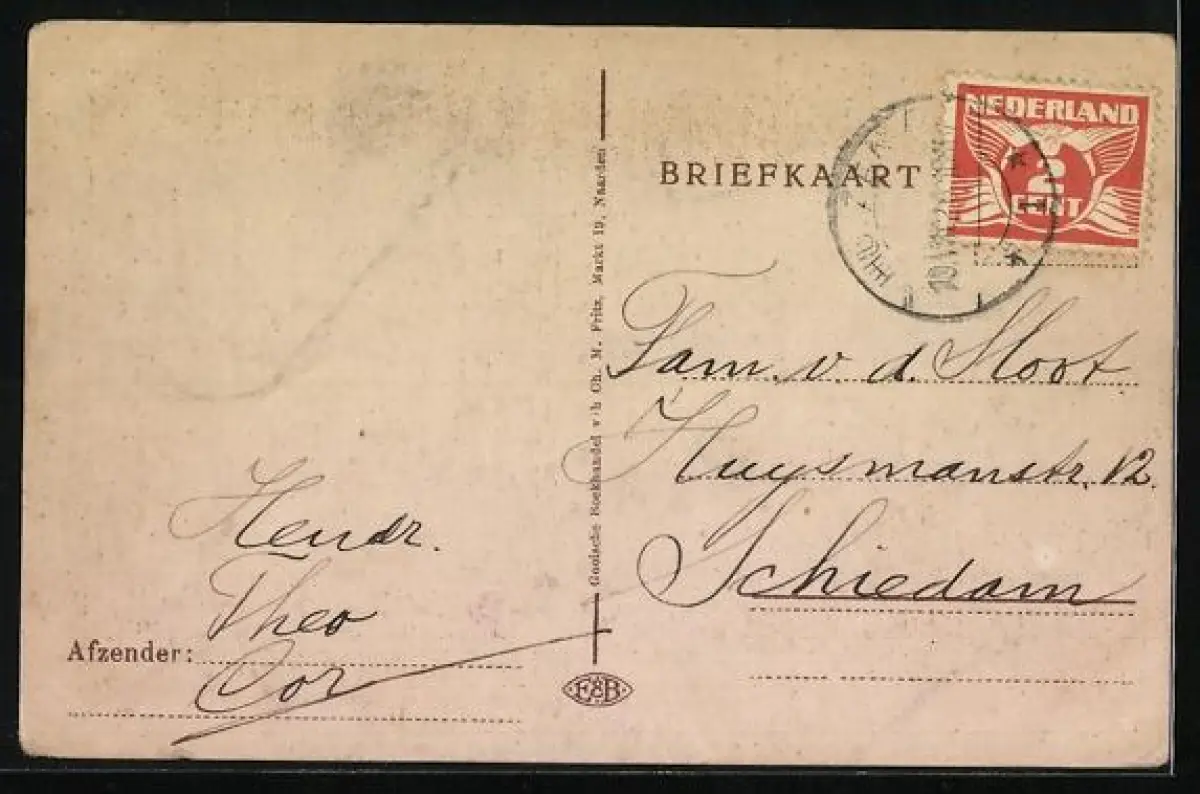 BRIEFKAART
NEDERLAND
2
CENT
Fam. v. d. Sloot
Huysmanstr. 12.
Schiedam
Gooische Boekhandel v/h Ch. M. Fritz, Markt 19, Naarden
Hendr.
Theo
Afzender:
Cor
E&B